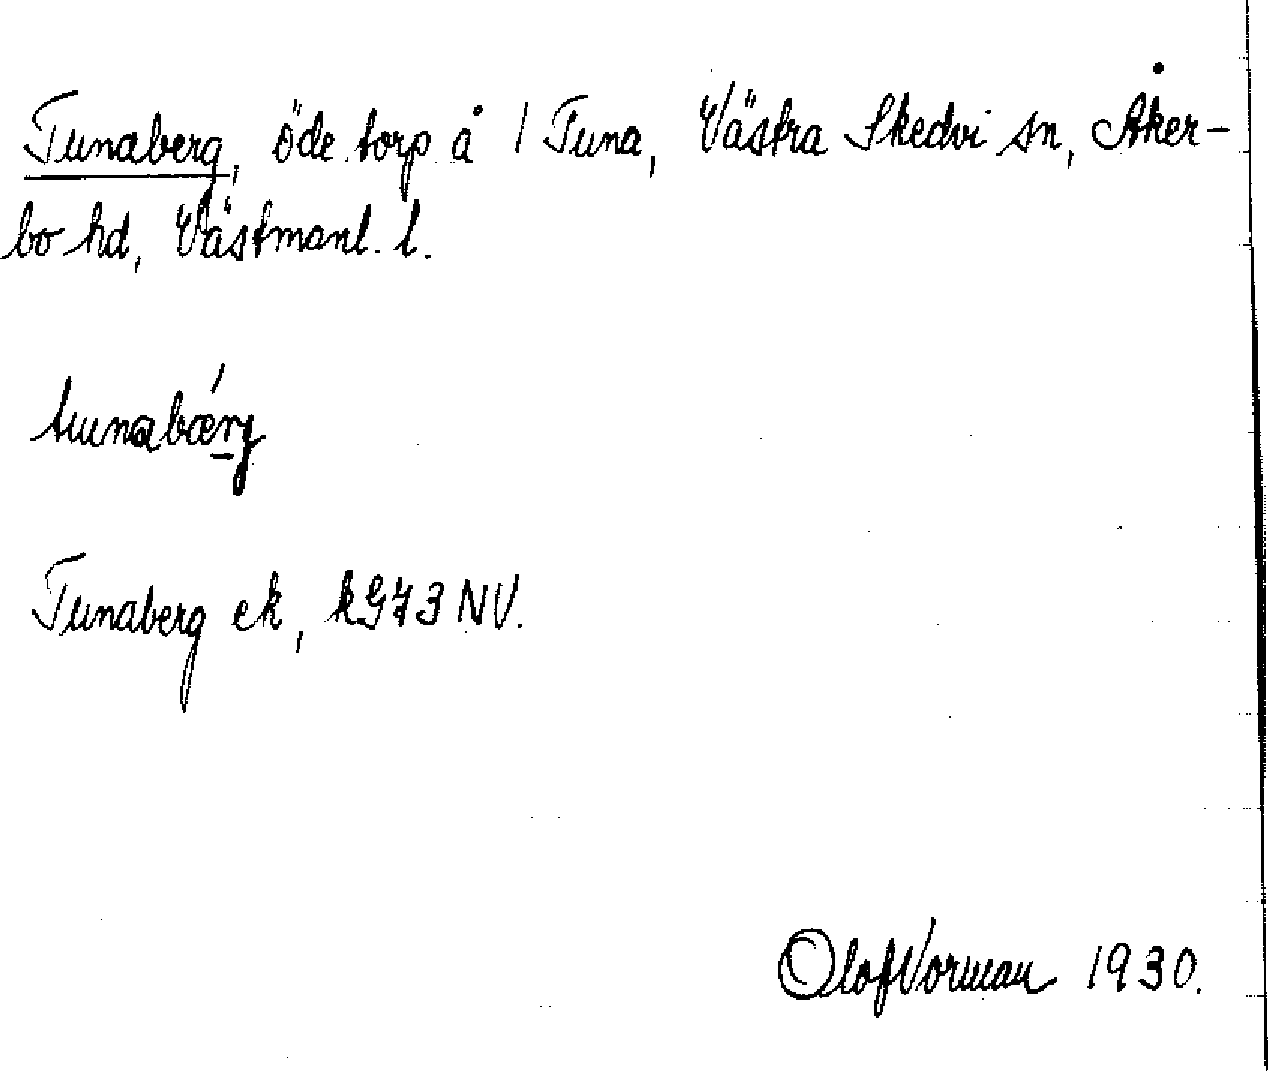 Tunaberg, öde torp å 1 Tuna, Västra Skedvi sn, Åker-
bo hd, Västmanl. l.
tunabærg
Tunaberg ek, kG73 NV.
Olof Vorman 1930.